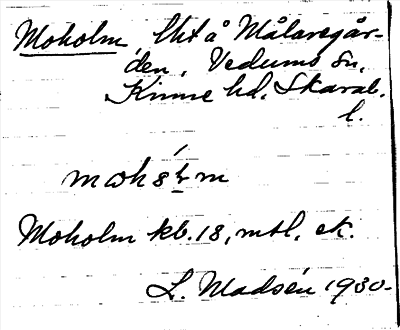 Moholm, lht å Målaregår-
den, Vedums sn,
Kinne hd, Skarab.
l.
Moholm kb. 18, mtl, ek.
L. Madsén 1930.